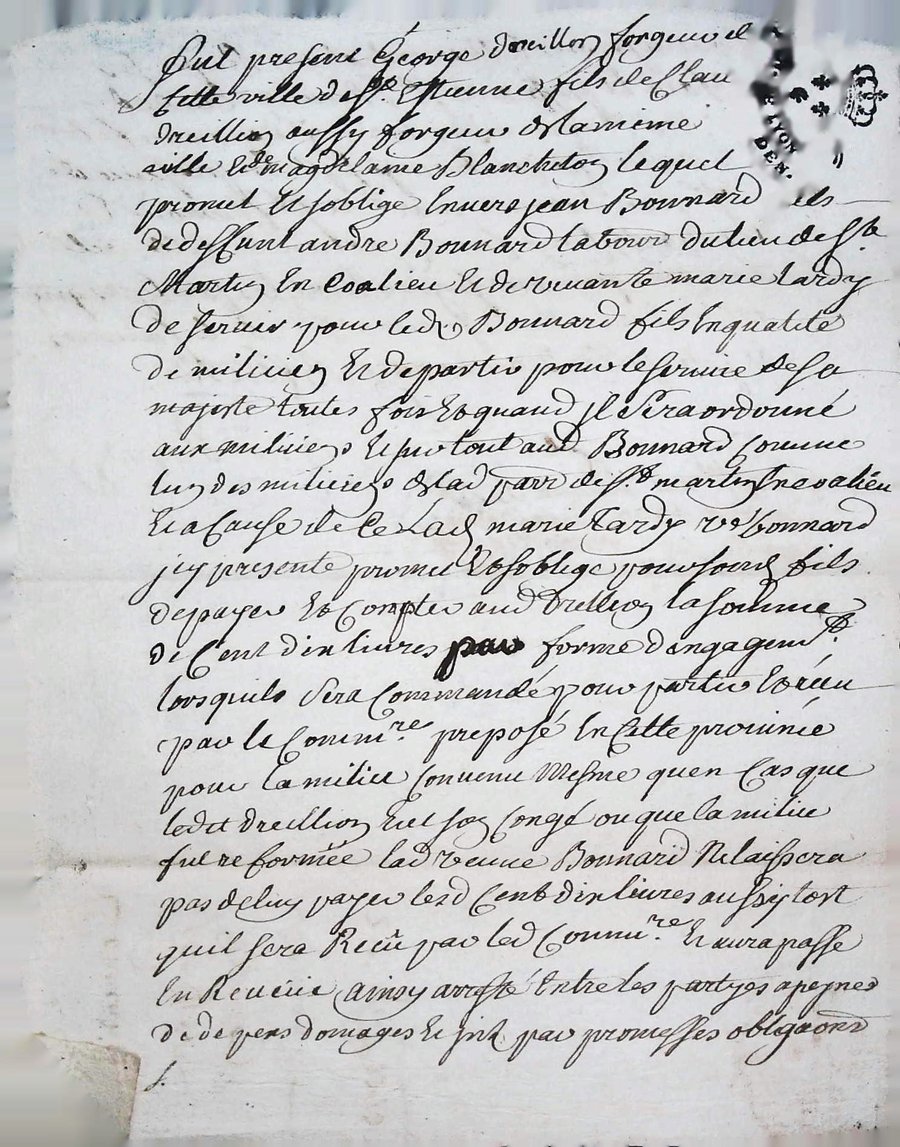 Fut present George dreillon forgeur d
Cette ville de St. Estienne fils de Clau
LYON
DEN.
dreillion aussy forgeur de la meme
ville Et de magdelaine Blancheton lequel
promet Et soblige Envers jean Bonnard fils
de deffunt andre Bonnard labour du lieu de St.
Martin En Coalieu Et de vivante marie tardy
de servir pour led Bonnard fils En qualité
de milicien Et de partir pour le service de sa
majeste toutes fois Et quand jl Sera ordonné
aux miliciens Et sur tout aud Bonnard Comme
lun des miliciens de lad parr de St. martin En coalieu
Et a Cause de Ce Lad marie tardy ve bonnard
jcy presente promet Et soblige pour sond fils
de payer Et Compter aud dreillion la somme
de Cent dix livres par forme dengagemt.
lors quils Sera Commandé pour partir Et reçu
par le Commre. preposé En Cette province
pour la milice Convenu Mesme quen Cas que
ledit dreillion Eut son Congé ou que la milice
fut reformée lad veuve Bonnard Ne laissera
pas de luy payer lesd Cent dix livres aussytost
quil sera Reçu par led Commre. Et aura passe
En Reveüe ainsy arresté Entre les partyes apeynes
de depens domages Et jnt par promesses obligaons